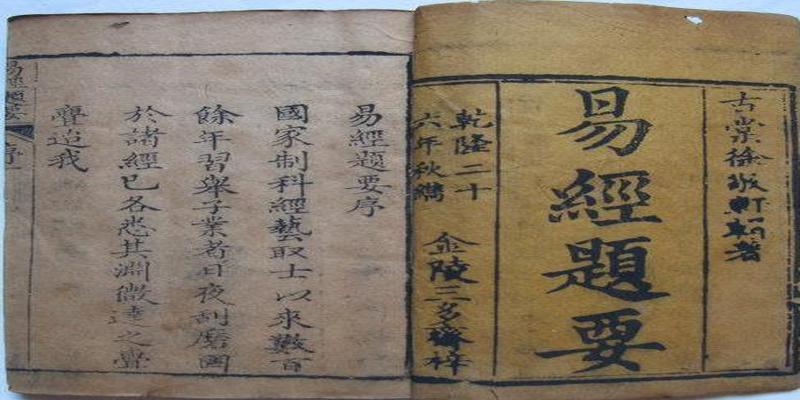 古棠徐敬軒輯著
易經題要
乾隆二十
六年秋鐫
金陵三多齋梓
易經題要序
國家制科經藝取士以來數百
餘年習舉子業者日夜刮磨國
於諸經已各悉其淵微達之亹
亹造我
易經題要
序